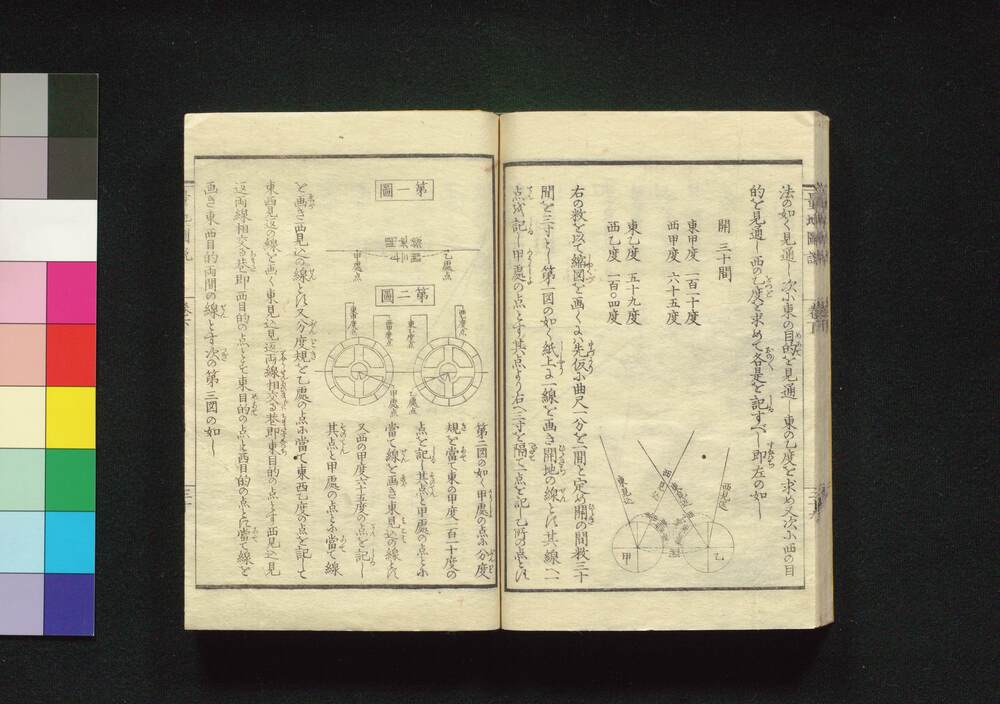 法の如く見通し次小東の目的を見通し東の乙度を求め又次小西の目
的を見通し西の乙度を求めて各是を記すべし即左の如し
開 三十間
東甲度 一百二十度
西甲度 六十五度
東乙度 五十九度
西乙度 一百〇四度
西見込
東見返
西見返
東見込
乙
甲
右の数を以て縮図を画くには先仮小曲尺一分を一間と定め開の間数三十
間を三寸とし第一図の如く紙上に一線を画き開地の線とし其線へ一
点を記し甲處の点とす其点より右へ三寸を隔て一点を記し乙所の点とし
第一圖
乙處点
甲處点
第二圖
西乙度点
東乙度点
西甲度点
東甲度点
乙處点
甲處点
第二図の如く甲處の点小分度
規を當て東の甲度一百二十度の
点を記し其点と甲處の点と小
當て線を画き東見込の線とし
又西の甲度六十五度の点を記し
其点と甲處の点と小當て線
を画き西見込の線とし又分度規を乙處の点小當て東西乙度の点を記して
東西見返の線を画く東見込見返両線相交る巷即東目的の点とす西見込見
返両線相交る巷即西目的の点として東目的の点と西目的の点とに當て線を
画き東西目的両間の線とす次の第三図の如し